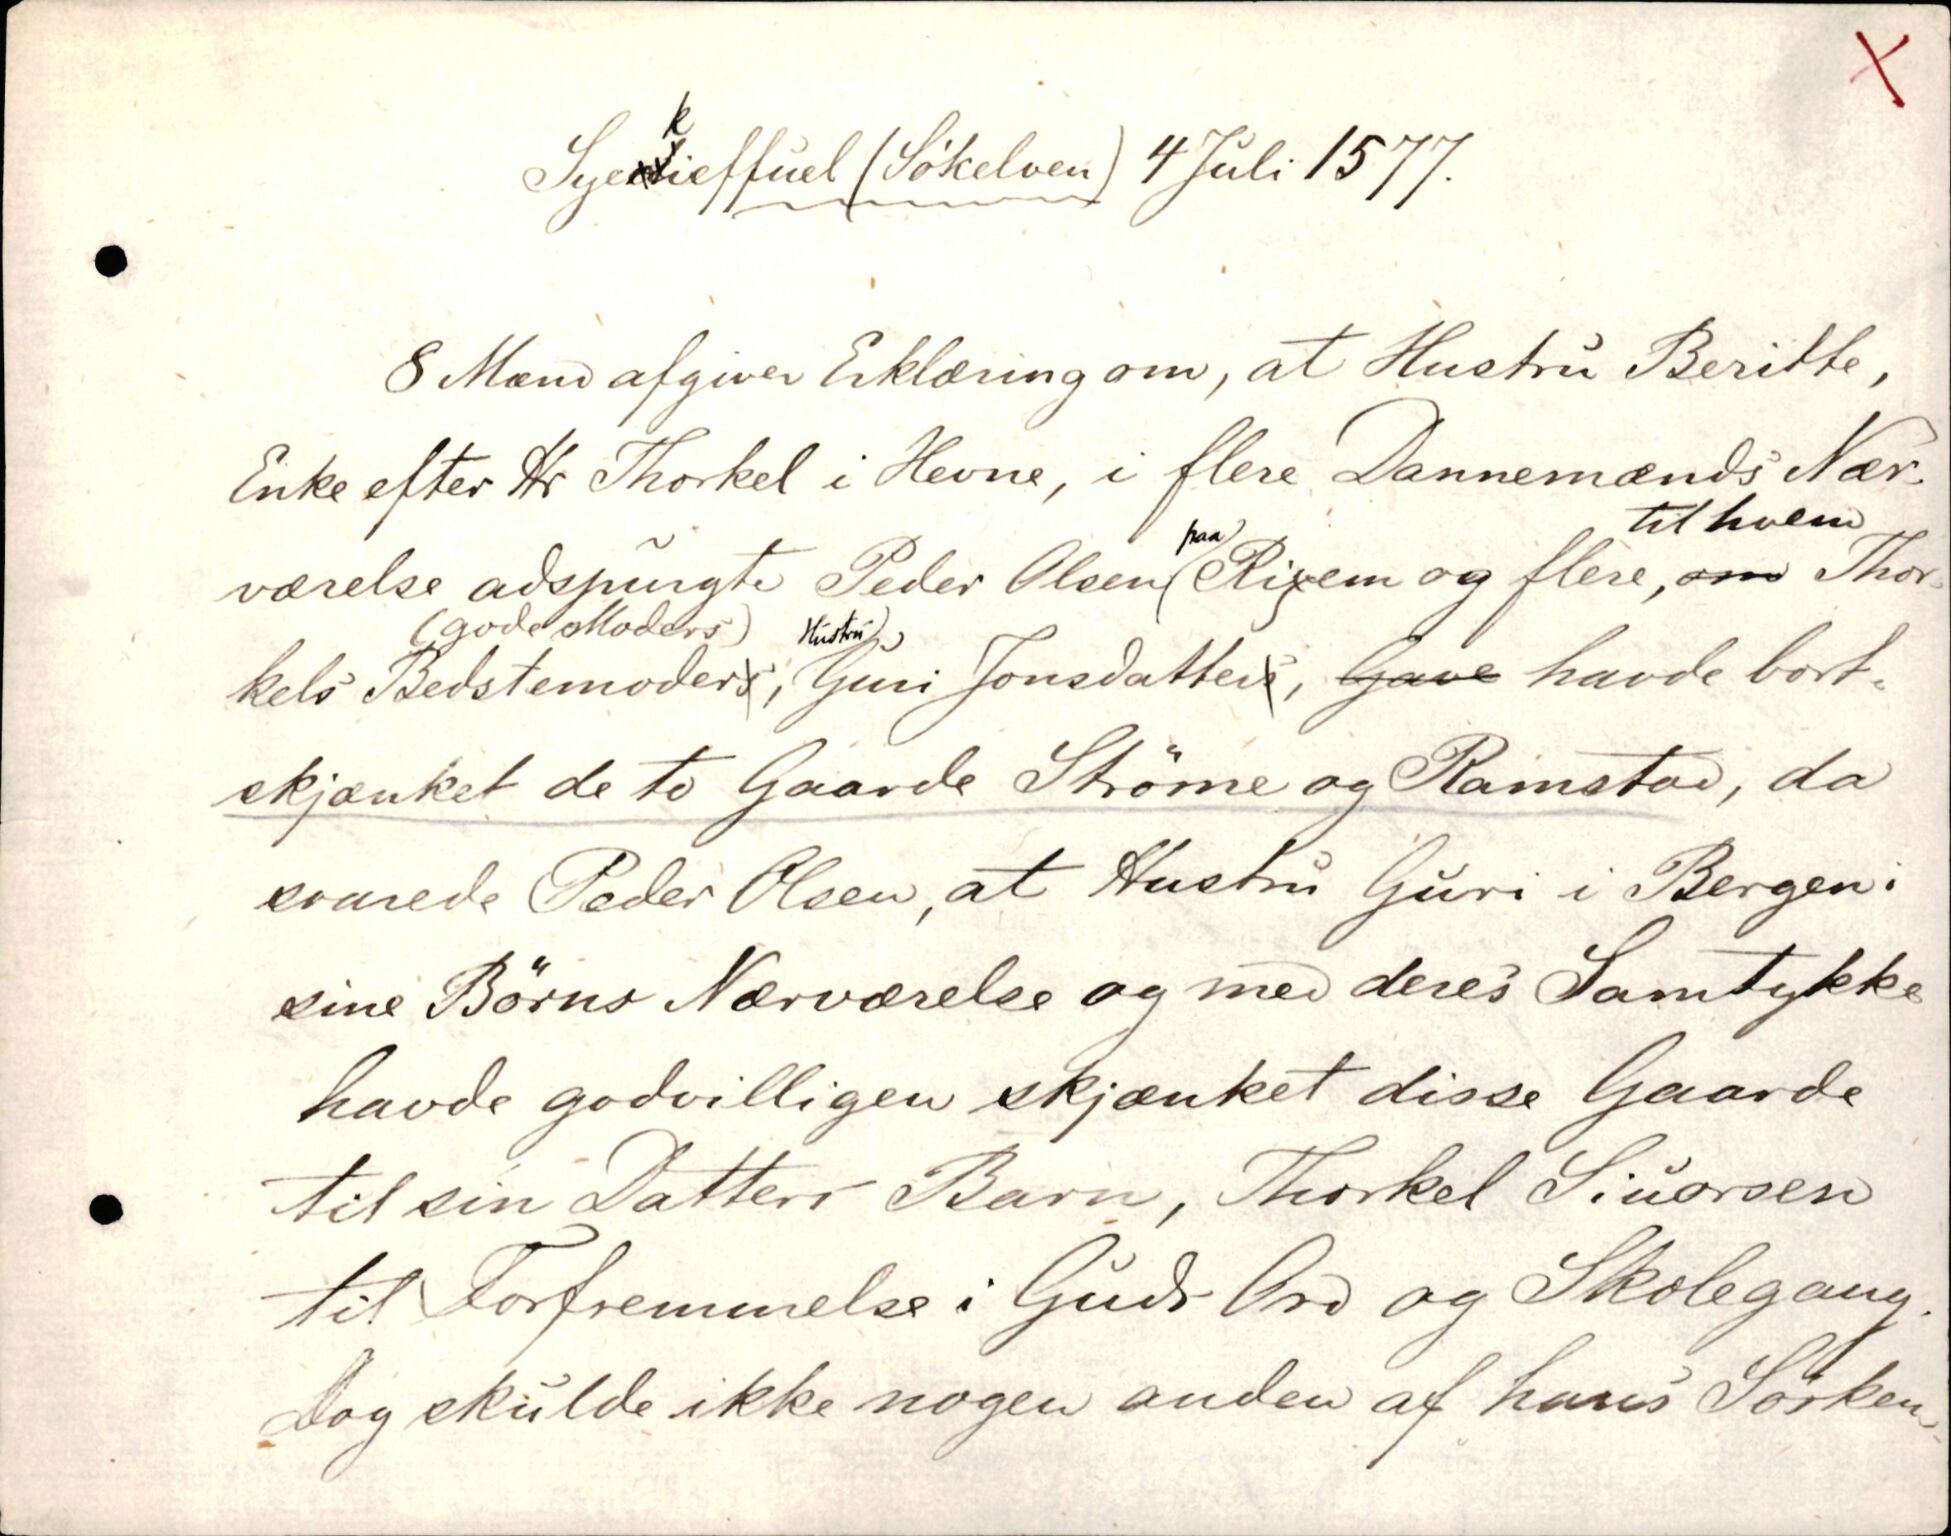 Syekieffuel (Sökelven) 4 Juli 1577.
8 Mænd afgiver Erklæring om, at Hustru Beritte,
Enke efter Hr Thorkel i Hevne, i flere Dannemænds Nær-
værelse adspurgte Peder Olsen (paa) Rixem og flere, til hvem Thor-
kels Bedstemoder (gode Moders), Hustru Guri Jonsdatter, havde bort-
skjænket de to Gaarde Ströme og Ramstad, da
svarede Peder Olsen, at Hustru Guri i Bergen i
sine Börns Nærværelse og med deres Samtykke
havde godvilligen skjænket disse Gaarde
til sin Datters Barn, Thorkel Siuorsen
til Forfremmelse i Guds Ord og Skolegang.
Dog skulde ikke nogen anden af hans Sösken-